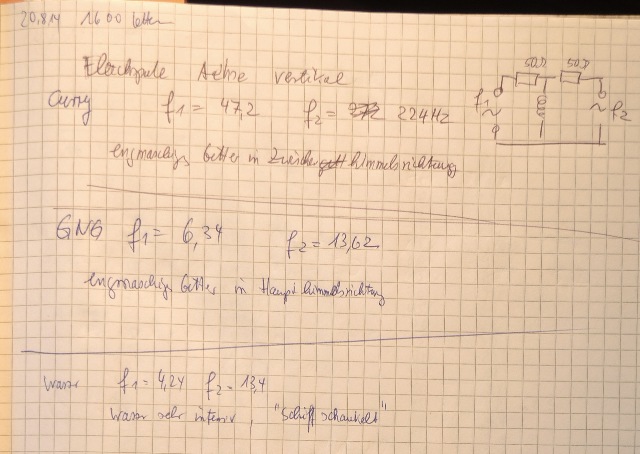 20.8.14 1600
50Ω 50Ω
Flachspule Achse vertikal
f1 f2
Curry f1 = 47,2 f2 = 224 Hz
engmaschiges Gitter in Zwischenhimmelsrichtung
GNG f1 = 6,34 f2 = 13,62
engmaschiges Gitter in Haupthimmelsrichtung
Wasser f1 = 4,24 f2 = 13,4
Wasser sehr intensiv, "Schiff schaukelt"